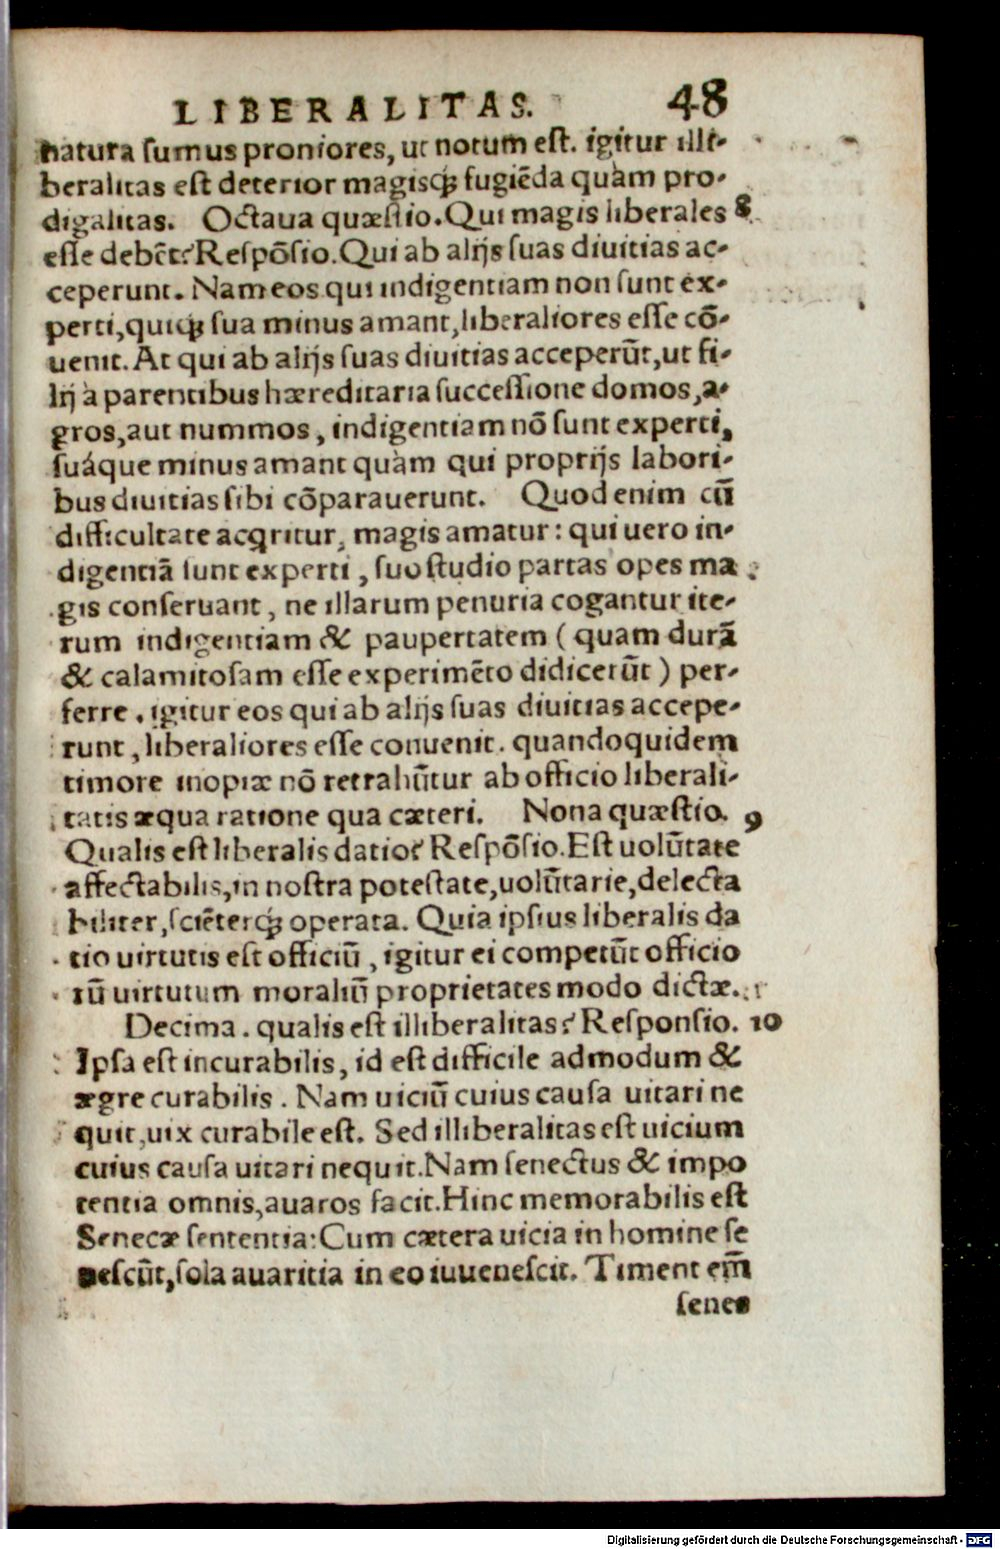 LIBERALITAS. 48
natura sumus proniores, ut notum est. igitur illi-
beralitas est deterior magisq́; fugiẽda quàm pro-
digalitas. Octaua quæstio. Qui magis liberales 8
esse debẽt? Respõsio. Qui ab alijs suas diuitias ac-
ceperunt. Nam eos qui indigentiam non sunt ex-
perti, quiq́; sua minus amant, liberaliores esse cõ-
uenit. At qui ab alijs suas diuitias acceperũt, ut fi-
lij à parentibus hæreditaria successione domos, a-
gros, aut nummos, indigentiam nõ sunt experti,
suáque minus amant quàm qui proprijs labori-
bus diuitias sibi cõparauerunt. Quod enim cũ
difficultate acqritur, magis amatur: qui uero in-
digentiã sunt experti, suo studio partas opes ma
gis conseruant, ne illarum penuria cogantur ite-
rum indigentiam & paupertatem (quam durã
& calamitosam esse experimẽto didicerũt) per-
ferre. igitur eos qui ab alijs suas diuitias accepe-
runt, liberaliores esse conuenit. quandoquidem
timore inopiæ nõ retrahũtur ab officio liberali-
tatis æqua ratione qua cæteri. Nona quæstio. 9
Qualis est liberalis datio? Respõsio. Est uolũtate
affectabilis, in nostra potestate, uolũtarie, delecta
biliter, sciẽterq́; operata. Quia ipsius liberalis da
tio uirtutis est officiũ, igitur ei competũt officio
rũ uirtutum moraliũ proprietates modo dictæ.
Decima. qualis est illiberalitas? Responsio. 10
Ipsa est incurabilis, id est difficile admodum &
ægre curabilis. Nam uiciũ cuius causa uitari ne
quit, uix curabile est. Sed illiberalitas est uicium
cuius causa uitari nequit. Nam senectus & impo
tentia omnis, auaros facit. Hinc memorabilis est
Senecæ sententia: Cum cætera uicia in homine se
nescũt, sola auaritia in eo iuuenescit. Timent em̃
senes
Digitalisierung gefördert durch die Deutsche Forschungsgemeinschaft - DFG